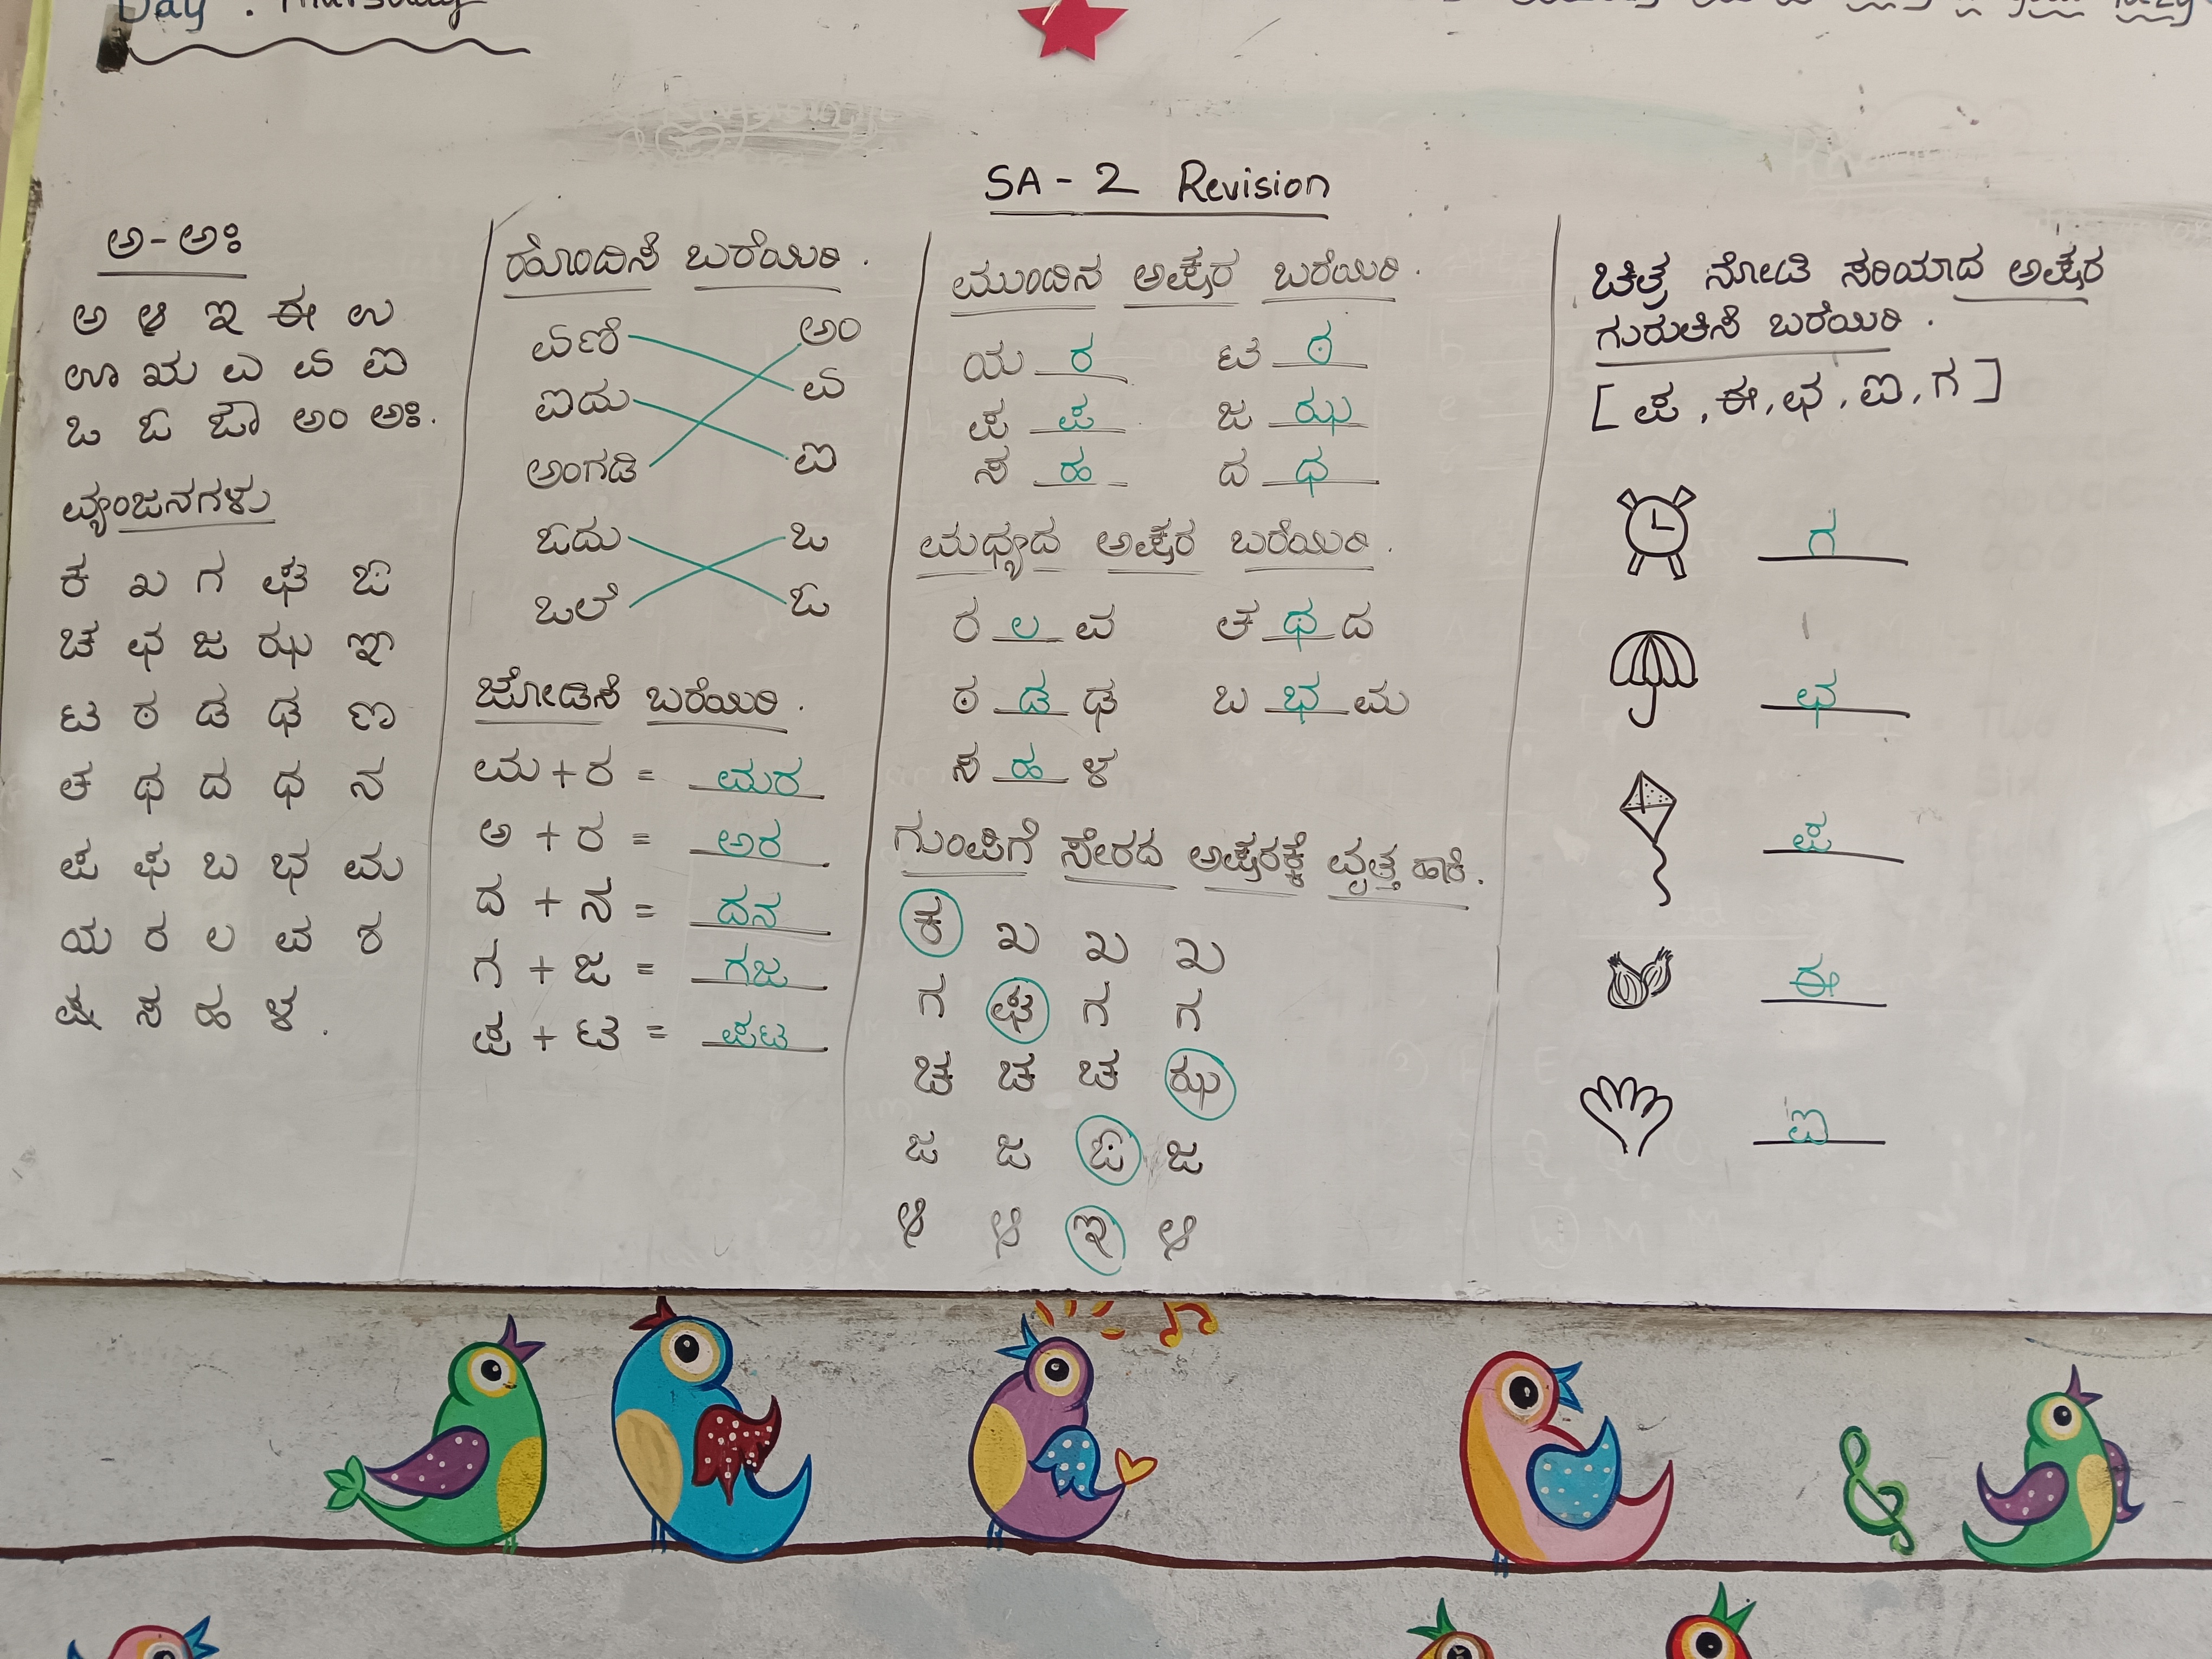 Day : Thursday
SA - 2 Revision
ಅ - ಅಃ
ಅ ಆ ಇ ಈ ಉ
ಊ ಋ ಎ ಏ ಐ
ಒ ಓ ಔ ಅಂ ಅಃ.
ವ್ಯಂಜನಗಳು
ಕ ಖ ಗ ಘ ಙ
ಚ ಛ ಜ ಝ ಞ
ಟ ಠ ಡ ಢ ಣ
ತ ಥ ದ ಧ ನ
ಪ ಫ ಬ ಭ ಮ
ಯ ರ ಲ ವ ಶ
ಷ ಸ ಹ ಳ .
ಹೊಂದಿಸಿ ಬರೆಯಿರಿ .
ಏಣಿ ಅಂ
ಐದು ಏ
ಅಂಗಡಿ ಐ
ಓದು ಒ
ಒಲೆ ಓ
ಜೋಡಿಸಿ ಬರೆಯಿರಿ .
ಮ + ರ = ಮರ
ಅ + ರ = ಅರ
ದ + ನ = ದನ
ಗ + ಜ = ಗಜ
ಪ + ಟ = ಪಟ
ಮುಂದಿನ ಅಕ್ಷರ ಬರೆಯಿರಿ .
ಯ ರ ಟ ಠ
ಷ ಜ ಝ
ಸ ಹ ದ ಧ
ಮಧ್ಯದ ಅಕ್ಷರ ಬರೆಯಿರಿ .
ರ ಲ ವ ತ ಥ ದ
ಠ ಡ ಢ ಬ ಭ ಮ
ಸ ಹ ಳ
ಗುಂಪಿಗೆ ಸೇರದ ಅಕ್ಷರಕ್ಕೆ ವೃತ್ತ ಹಾಕಿ .
ಕ ಖ ಖ ಖ
ಗ ಘ ಗ ಗ
ಚ ಚ ಚ ಝ
ಜ ಜ ಙ ಜ
ಆ ಆ ಇ ಆ
ಚಿತ್ರ ನೋಡಿ ಸರಿಯಾದ ಅಕ್ಷರ
ಗುರುತಿಸಿ ಬರೆಯಿರಿ .
[ ಪ , ಈ , ಛ , ಐ , ಗ ]
ಗ
ಛ
ಪ
ಈ
ಐ